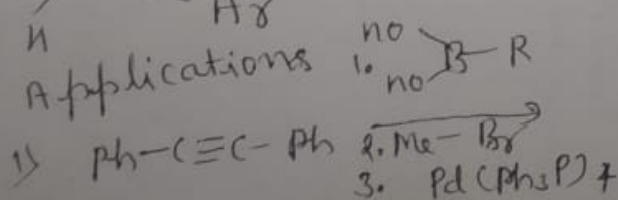 H Ar
Applications 1. HO HO B-R
1) Ph-C≡C-Ph 2. Me-Br
3. Pd(Ph3P)4